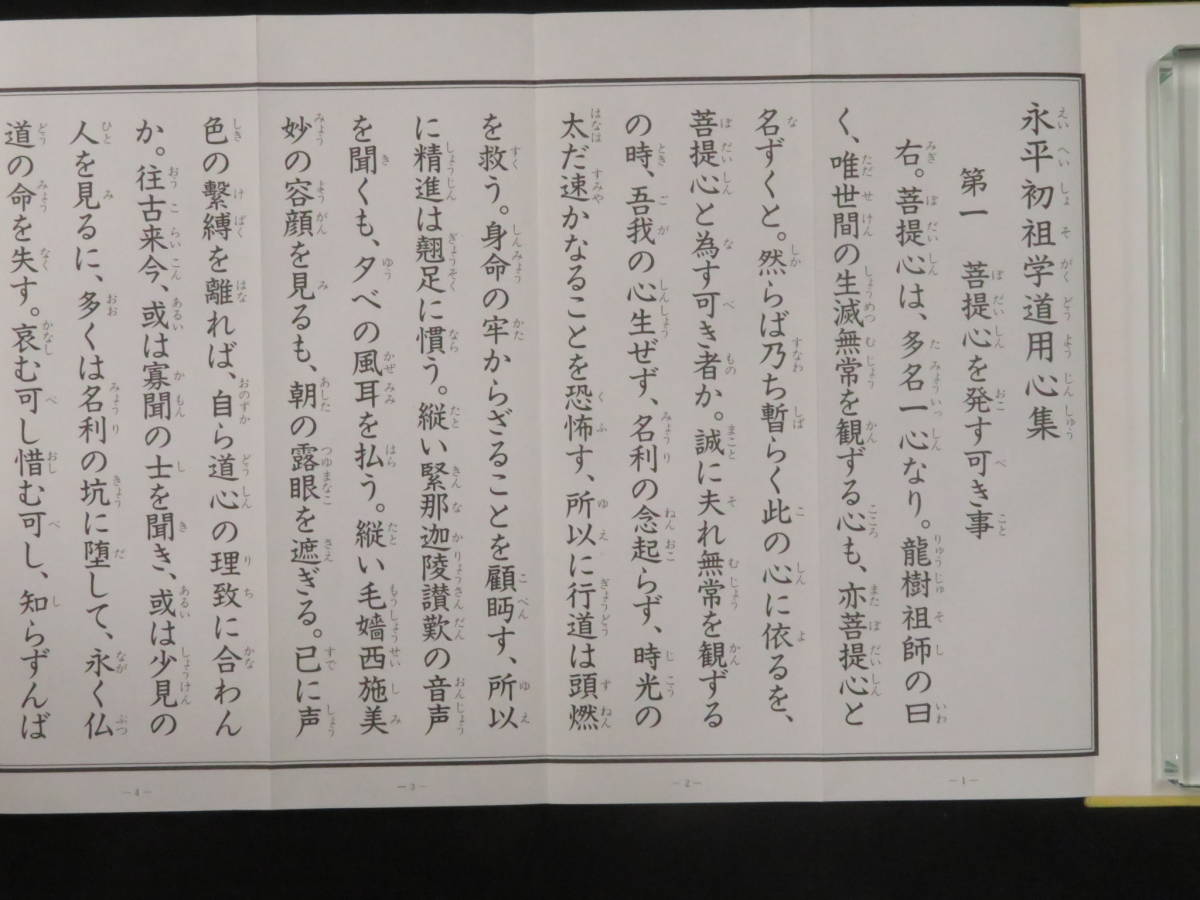 永平初祖学道用心集
第一 菩提心を発す可き事
右。菩提心は、多名一心なり。龍樹祖師の曰
く、唯世間の生滅無常を観ずる心も、亦菩提心と
名ずくと。然らば乃ち暫らく此の心に依るを、
菩提心と為す可き者か。誠に夫れ無常を観ずる
の時、吾我の心生ぜず、名利の念起らず、時光の
太だ速かなることを恐怖す、所以に行道は頭燃
を救う。身命の牢からざることを顧眄す、所以
に精進は翹足に慣う。縦い緊那迦陵讃歎の音声
を聞くも、夕べの風耳を払う。縦い毛嬙西施美
妙の容顔を見るも、朝の露眼を遮ぎる。已に声
色の繫縛を離れば、自ら道心の理致に合わん
か。往古来今、或は寡聞の士を聞き、或は少見の
人を見るに、多くは名利の坑に堕して、永く仏
道の命を失す。哀む可し惜む可し、知らずんば
-1-
-2-
-3-
-4-